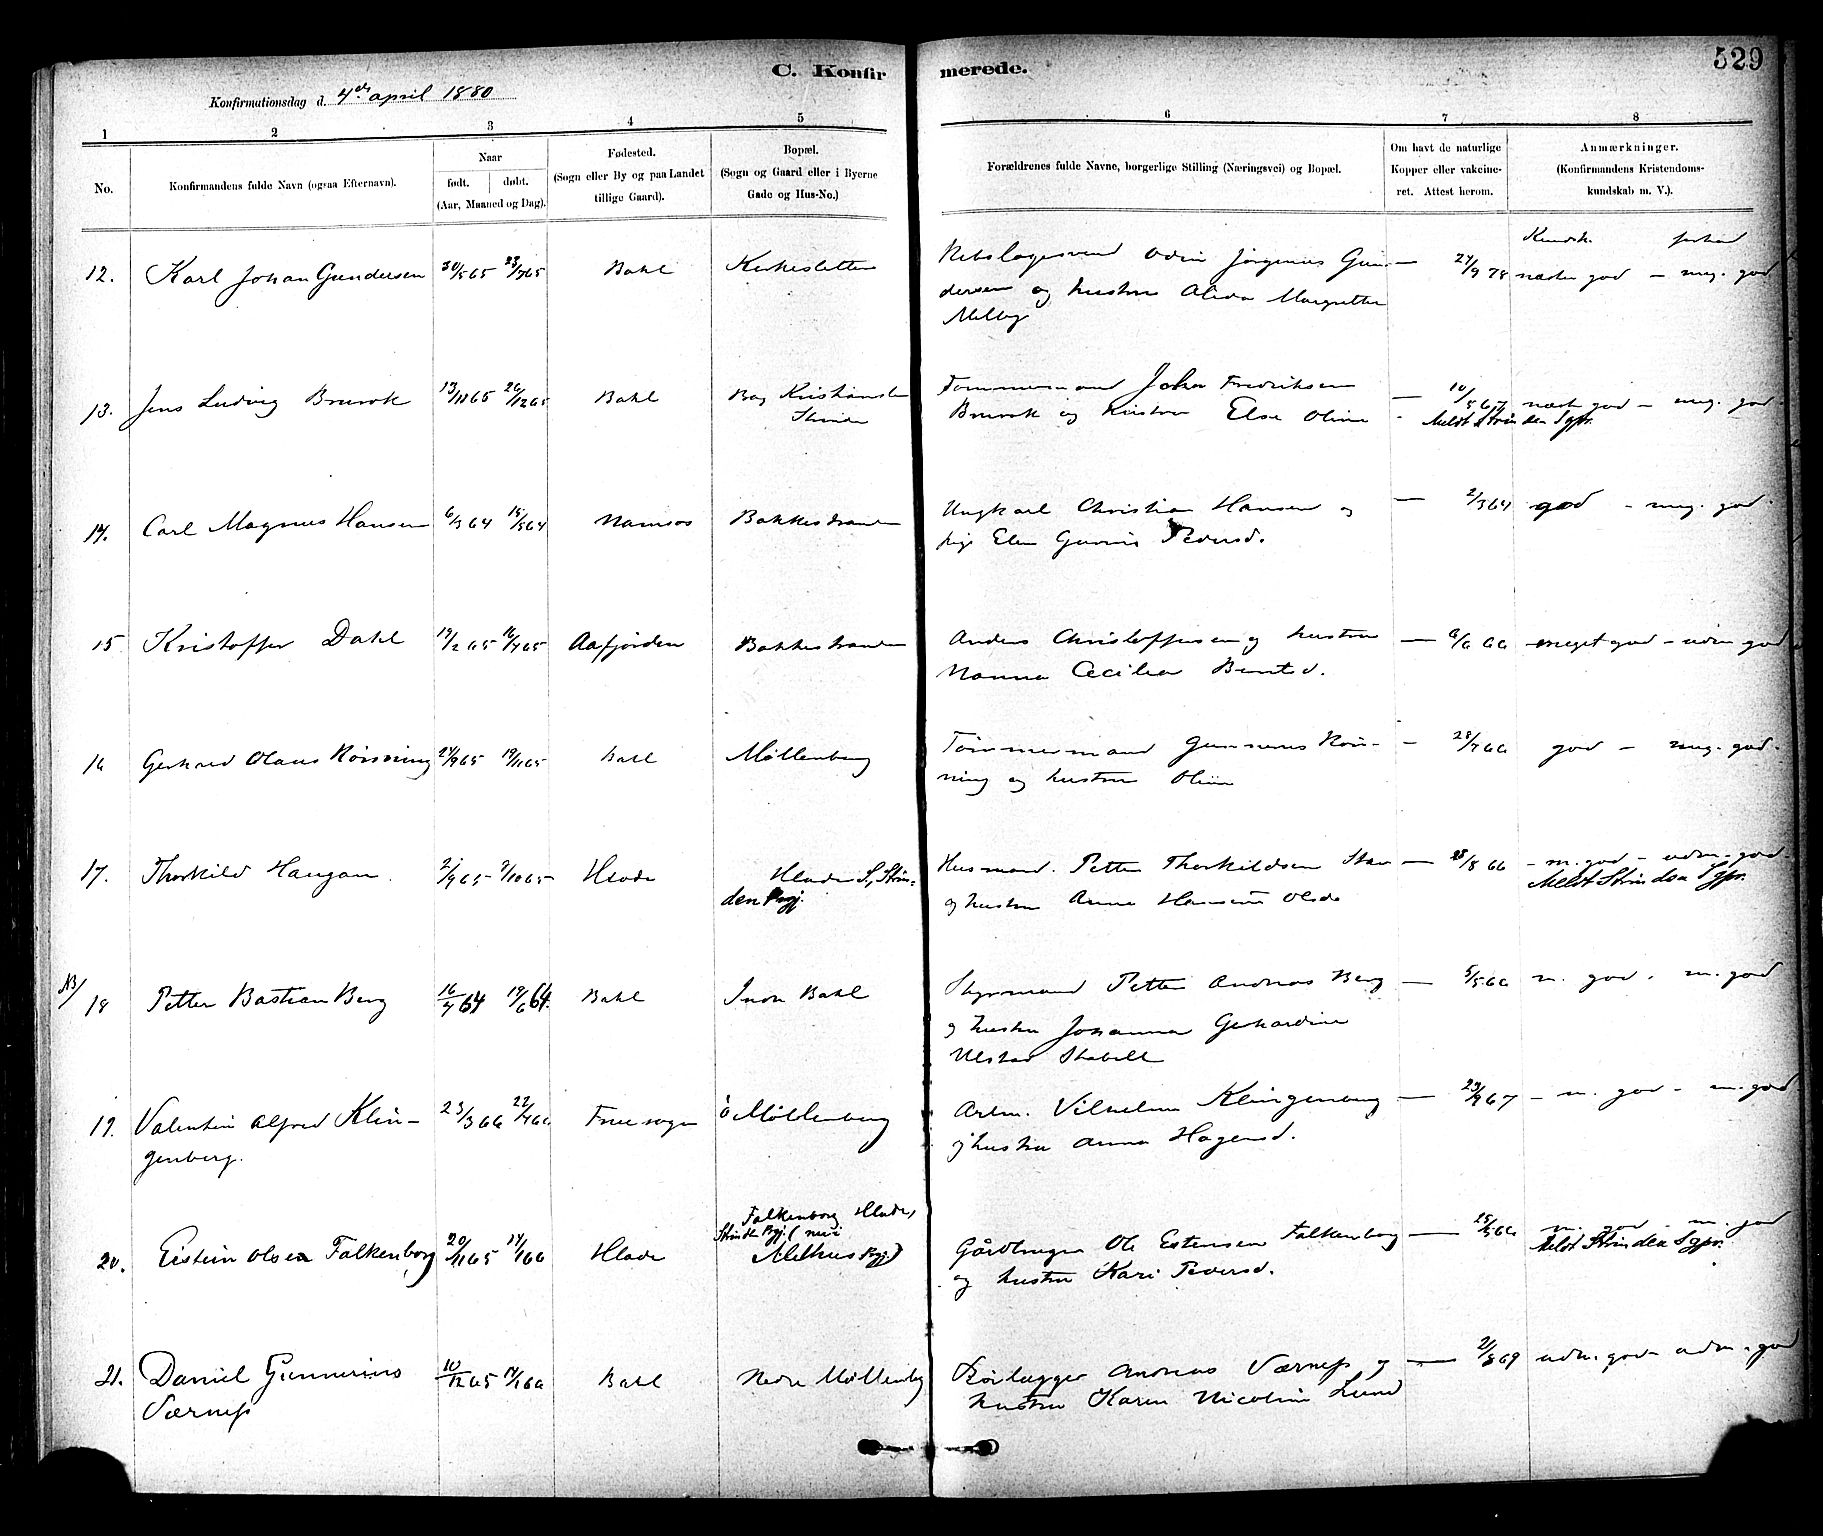 529
C. Konfir merede.
Konfirmationsdag d. 4de april 1880
1 2 3 4 5 6 7 8
No.
Konfirmandens fulde Navn (ogsaa Efternavn).
Naar
født. døbt.
(Aar, Maaned og Dag).
Fødested.
(Sogn eller By og paa Landet
tillige Gaard).
Bopæl.
(Sogn og Gaard eller i Byerne
Gade og Hus-No.)
Forældrenes fulde Navne, borgerlige Stilling (Næringsvei) og Bopæl.
Om havt de naturlige
Kopper eller vakcine-
ret. Attest herom.
Anmærkninger.
(Konfirmandens Kristendoms-
kundskab m. V.).
Kundsk. forhold
12. Karl Johan Gundersen 30/5 65 23/7 65 Bakl Kirkesletten
Rebslagersvend Odin Jørginus Gun-
dersen og hustru Alida Margrethe
Melby
— 27/9 78 næsten god — meg. god
13. Jens Ludvig Brurok 13/11 65 26/12 65 Bakl Bag Kristiansten
Strinden
Tømmermand Johan Fredriksen
Brurok og hustru Else Oline
— 10/8 67 næsten god — meg. god
Meldt Strinden Sgpr.
14. Carl Magnus Hansen 6/3 64 15/5 64 Namsos Bakkestranden
Ungkarl Christian Hansen og
pige Elen Gurine Pedersd.
— 2/3 64 god — meg. god.
15 Kristoffer Dahl 19/2 65 16/4 65 Aafjorden Bakkestranden
Anders Christoffersen og hustru
Nanna Cecilia Berntsd.
— 6/6 66 meget god — udm. god
16 Gerhard Olaus Rønning 24/9 65 19/11 65 Bakl Møllenberg
Tømmermand Gunnerus Røn-
ning og hustru Oline
— 28/7 66 god — meg. god.
17. Thorkild Haugan. 2/9 65 9/10 65 Hlade Hlade S, Strin-
den Prgj.
Husmand. Petter Thorkildsen Stav
og hustru Anna Olsd.
— 28/8 66 — m. god — udm. god.
Meldt Strinden Sgpr.
NB/ 18 Petter Bastian Berg 16/4 64 19/6 64. Bakl Indre Bakl
Styrmand Petter Andreas Berg
og hustru Johanna Gerhardine
Ulstad Stabell
— 5/5 66 m. god. m. god
19. Valentin Alfred Klin-
genberg.
23/3 66 22/4 66 Frue sogn ö Møllenberg
Arbm. Vilhelm Klingenberg
og hustru Anna Hagensd.
— 23/9 67 — m. god — m. god
20. Eistein Olsen Falkenborg 20/11 65 14/1 66 Hlade Falkenborg Hlade,
Strinden Prgj. (nu i
Melhus Prgj.)
Gårdbruger Ole Estensen Falkenborg
og hustru Kari Pedersd.
— 25/5 66 m. god — m. god
Meldt Strinden Sgpr.
21. Daniel Gunnerius
Værnes
10/12 65 14/1 66 Bakl Nedre Møllenbg
Rørlægger Andreas Værnes og
hustru Karen Nicoline Lund
— 2/8 69 udm. god — udm. god